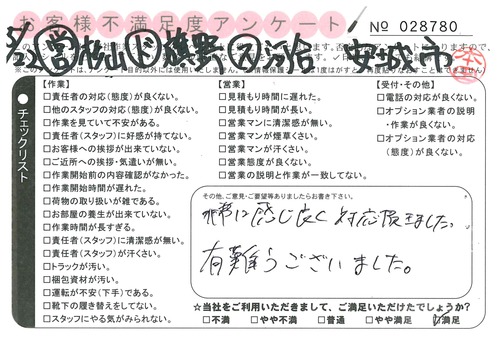 お客様不満足度アンケート
No 028780
営 松山 ド 磯野 河合 安城市
チェックリスト
【作業】
□責任者の対応(態度)が良くない。
□他のスタッフの対応(態度)が良くない。
□作業を見ていて不安がある。
□責任者(スタッフ)に好感が持てない。
□お客様への挨拶が出来ていない。
□ご近所への挨拶・気遣いが無い。
□作業開始前の内容確認がなかった。
□作業開始時間が遅れた。
□荷物の取り扱いが雑である。
□お部屋の養生が出来ていない。
□作業時間が長すぎる。
□責任者(スタッフ)に清潔感が無い。
□責任者(スタッフ)が汗くさい。
□トラックが汚い。
□梱包資材が汚い。
□運転が不安(下手)である。
□靴下の履き替えをしてない。
□スタッフにやる気がみられない。
【営業】
□見積もり時間に遅れた。
□見積もり時間が長い。
□営業マンに清潔感が無い。
□営業マンが煙草くさい。
□営業マンが汗くさい。
□営業態度が良くない。
□営業の説明と作業が一致してない。
【受付・その他】
□電話の対応が良くない。
□オプション業者の説明
・作業が良くない。
□オプション業者の対応
(態度)が良くない。
その他、ご意見・ご要望等ありましたらお書き下さい。
非常に感じ良く対応頂きました。
有難うございました。
☆当社をご利用いただきまして、ご満足いただけたでしょうか?
□不満 □やや不満 □普通 □やや満足 ☑満足